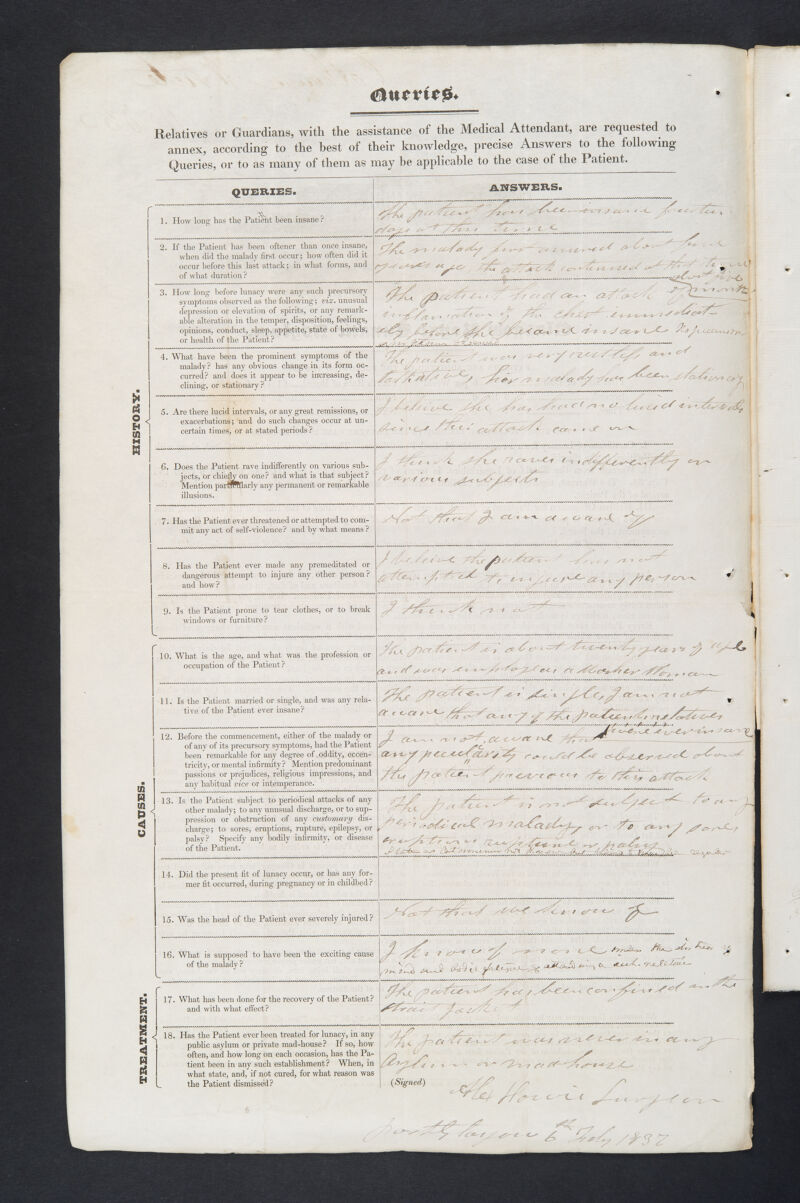 Queries.
Relatives or Guardians, with the assistance of the Medical Attendant, are requested to
annex, according to the best of their knowledge, precise Answers to the following
Queries, or to as many of them as may be applicable to the case of the Patient.
QUERIES.
ANSWERS.
HISTORY.
1. How long has the Patient been insane?
The patient has been insane fourteen
days at this time
2. If the Patient has been oftener than once insane,
when did the malady first occur; how often did it
occur before this last attack; in what forms, and
of what duration?
The malady first occurred about four
years ago, the attack continued at that time
about five
months
3. How long before lunacy were any such precursory
symptoms observed as the following; viz. unusual
depression or elevation of spirits, or any remark-
able alteration in the temper, disposition, feelings,
opinions, conduct, sleep, appetite, state of bowels,
or health of the Patient?
The patient had an attack of
inflamation of the chest immediat-
ely before she became insane
4. What have been the prominent symptoms of the
malady? has any obvious change in its form oc-
curred? and does it appear to be increasing, de-
clining, or stationary?
The patient was very restless and
talkative, her malady has been stationary
5. Are there lucid intervals, or any great remissions, or
exacerbations; and do such changes occur at un-
certain times, or at stated periods?
I believe she has had no lucid intervals
since this attack came on
6. Does the Patient rave indifferently on various sub-
jects, or chiefly on one? and what is that subject?
Mention particularly any permanent or remarkable
illusions.
I think she raves indifferently on
various subjects
7. Has the Patient ever threatened or attempted to com-
mit any act of self-violence? and by what means?
Not that I am aware of
8. Has the Patient ever made any premeditated or
dangerous attempt to injure any other person?
and how?
I believe the patient has not
attempted to injure any person
9. Is the Patient prone to tear clothes, or to break
windows or furniture?
I think not
CAUSES.
10. What is the age, and what was the profession or
occupation of the Patient?
The patient is about twenty years of age
and was employed as a Washer Woman
11. Is the Patient married or single, and was any rela-
tive of the Patient ever insane?
The patient is single, I am not
aware that any of the patients relatives
were ever insane
12. Before the commencement, either of the malady or
of any of its precursory symptoms, had the Patient
been remarkable for any degree of oddity, eccen-
tricity, or mental infirmity? Mention predominant
passions or prejudices, religious impressions, and
any habitual vice or intemperance.
I am not aware that
any peculiarity could be observed about
the patient previous to this attack
13. Is the Patient subject to periodical attacks of any
other malady; to any unusual discharge, or to sup-
pression or obstruction of any customary dis-
charge; to sores, eruptions, rupture, epilepsy, or
palsy? Specify any bodily infirmity, or disease
of the Patient.
The patient is not subject to any
periodical malady, or to any sores
eruptions rupture or palsy
regular
14. Did the present fit of lunacy occur, or has any for-
mer fit occurred, during pregnancy or in childbed?
15. Was the head of the Patient ever severely injured?
Not that we know of
16. What is supposed to have been the exciting cause
of the malady?
I know of none the distress of
mind and attending a sick relative
TREATMENT.
17. What has been done for the recovery of the Patient?
and with what effect?
The patient has been confined in the
strait Jacket
18. Has the Patient ever been treated for lunacy, in any
public asylum or private mad-house? If so, how
often, and how long on each occasion, has the Pa-
tient been in any such establishment? When, in
what state, and, if not cured, for what reason was
the Patient dismissed?
The patient was never in any
Asylum or madhouse
(Signed)
Alex Howie Surgeon
6th 1837